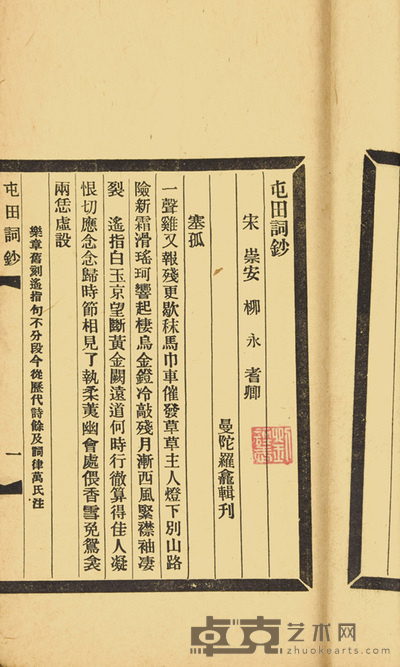 屯田詞鈔
宋 崇安 柳永 耆卿
曼陀羅龕輯刊
塞孤
一聲雞又報殘更歇秣馬巾車催發草草主人燈下別山路
險新霜滑瑤珂響起棲烏金鐙冷敲殘月漸西風緊襟袖凄
裂 遙指白玉京望斷黃金闕遠道何時行徹算得佳人凝
恨切應念念歸時節相見了執柔荑幽會處偎香雪免鴛衾
兩恁虛設
樂章舊刻遙指句不分段今從歷代詩餘及詞律萬氏注
屯田詞鈔
一
卓克艺术网
www.zhuokearts.com